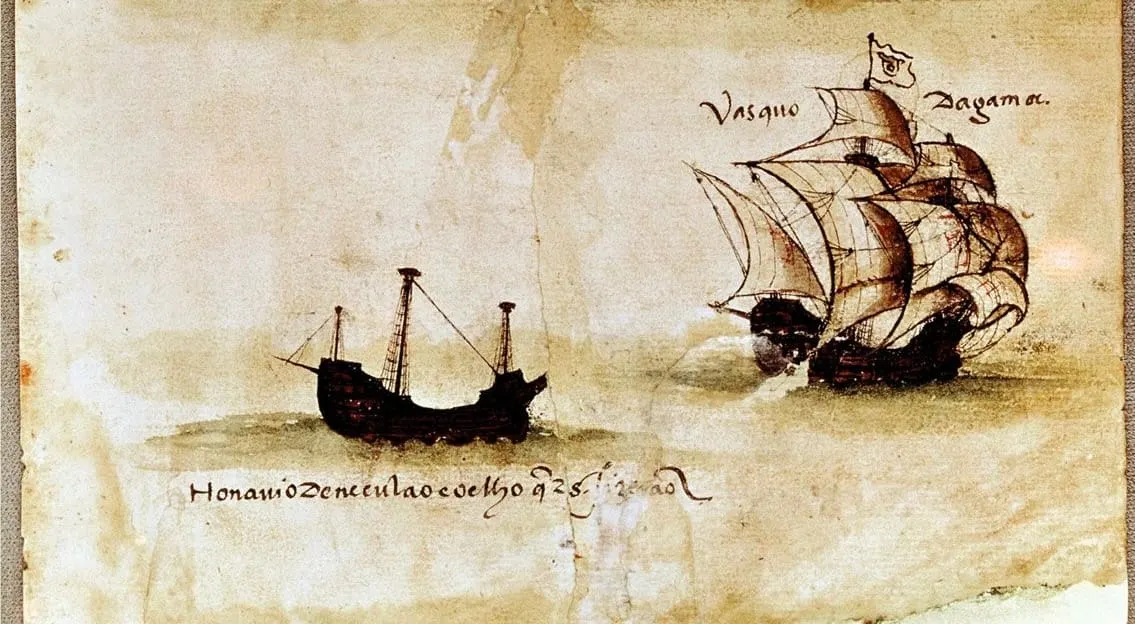 Vasquo Dagama.
Honauio Deneculao coelho